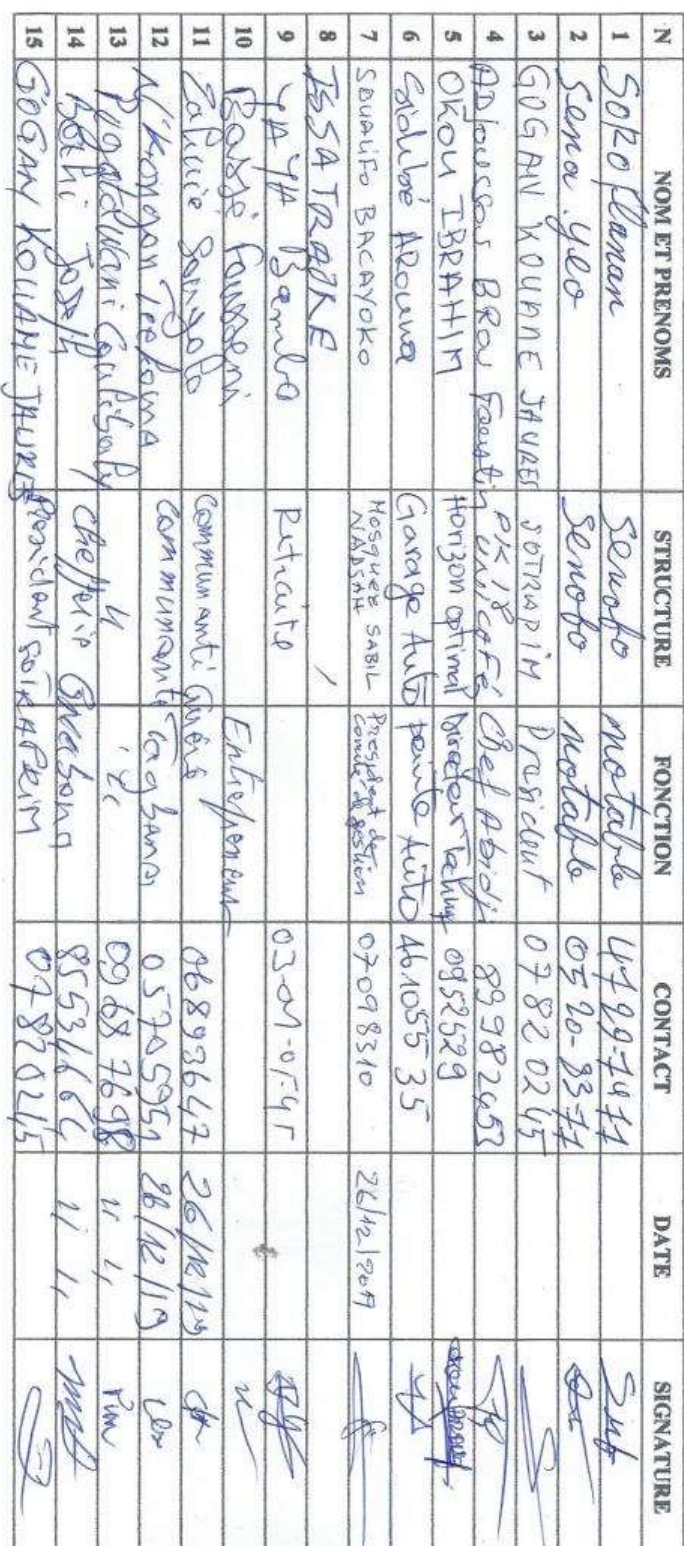 N NOM ET PRENOMS STRUCTURE FONCTION CONTACT DATE SIGNATURE
1 SORO flanan Senofo notable 4729-7477
2 Sena yeo Senofo notable 0520-8377
3 GOGAN KOUAME JAURES SOTRAPIM President 07820245
4 Adjoussou BROU Faustin PK 18 unicafé Chef Abidji 89982453
5 OKOU IBRAHIM Horizon optimal Directeur 0952529
6 Sidibé AROUNA Garage Auto peinte Auto 46105535
7 SOUALIFO BACAYOKO Mosquee SABIL NADJAH President de comité de gestion 07098310 26/12/2019
8 ISSA TRAORE
9 YA YA Bamba Retraite 03-01-05-45
10 Fousseni Entrepreneur
11 communanté Guéré 06893647 26/12/19
12 communanté Tagbana 05705951 26/12/19
13 Coulibaly 〃 〃 09687698 〃 〃
14 Joseph Chefferie 85534664 〃 〃
15 GOGAN KOUAME JAURES President SOTRAPRIM 07820245